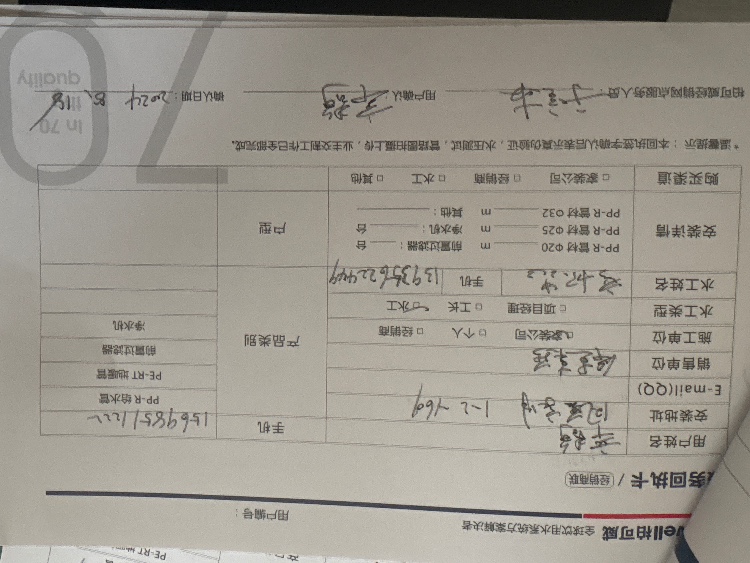 ell柏可威 全球饮用水系统方案解决者
用户编号：
务回执卡 / 经销商联
用户姓名
手机 15698851222
安装地址 1-2-469
E-mail(QQ)
销售单位
施工单位 □家装公司 □个人 □经销商
水工类型 □项目经理 □工长 □水工
水工姓名 手机 13935622449
产品类别
PP-R 给水管
PE-RT 地暖管
前置过滤器
净水机
安装详情
PP-R 管材 Φ20 m 前置过滤器： 台
PP-R 管材 Φ25 m 净水机： 台
PP-R 管材 Φ32 m 其他：
户型
购买渠道 □家装公司 □经销商 □水工 □其他
*温馨提示：本回执签字确认后表示真伪验证，水压测试，管路图拍摄上传，业主交割工作已全部完成。
柏可威经销网点服务人员： 用户确认 确认日期：2024
In 70
quality
70
PE-RT